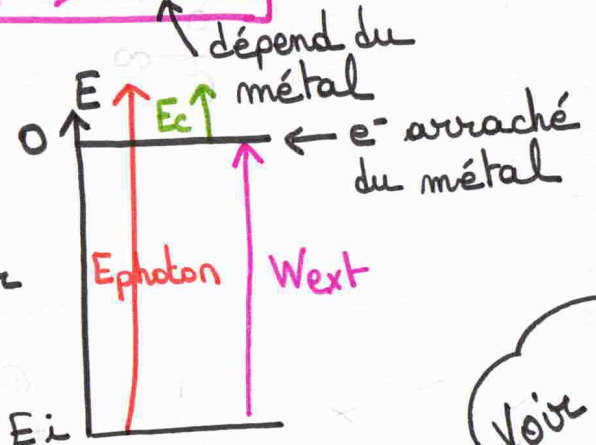 dépend du
métal
E
Ec
0
← e- arraché
du métal
Ephoton
Wext
Ei
Voir